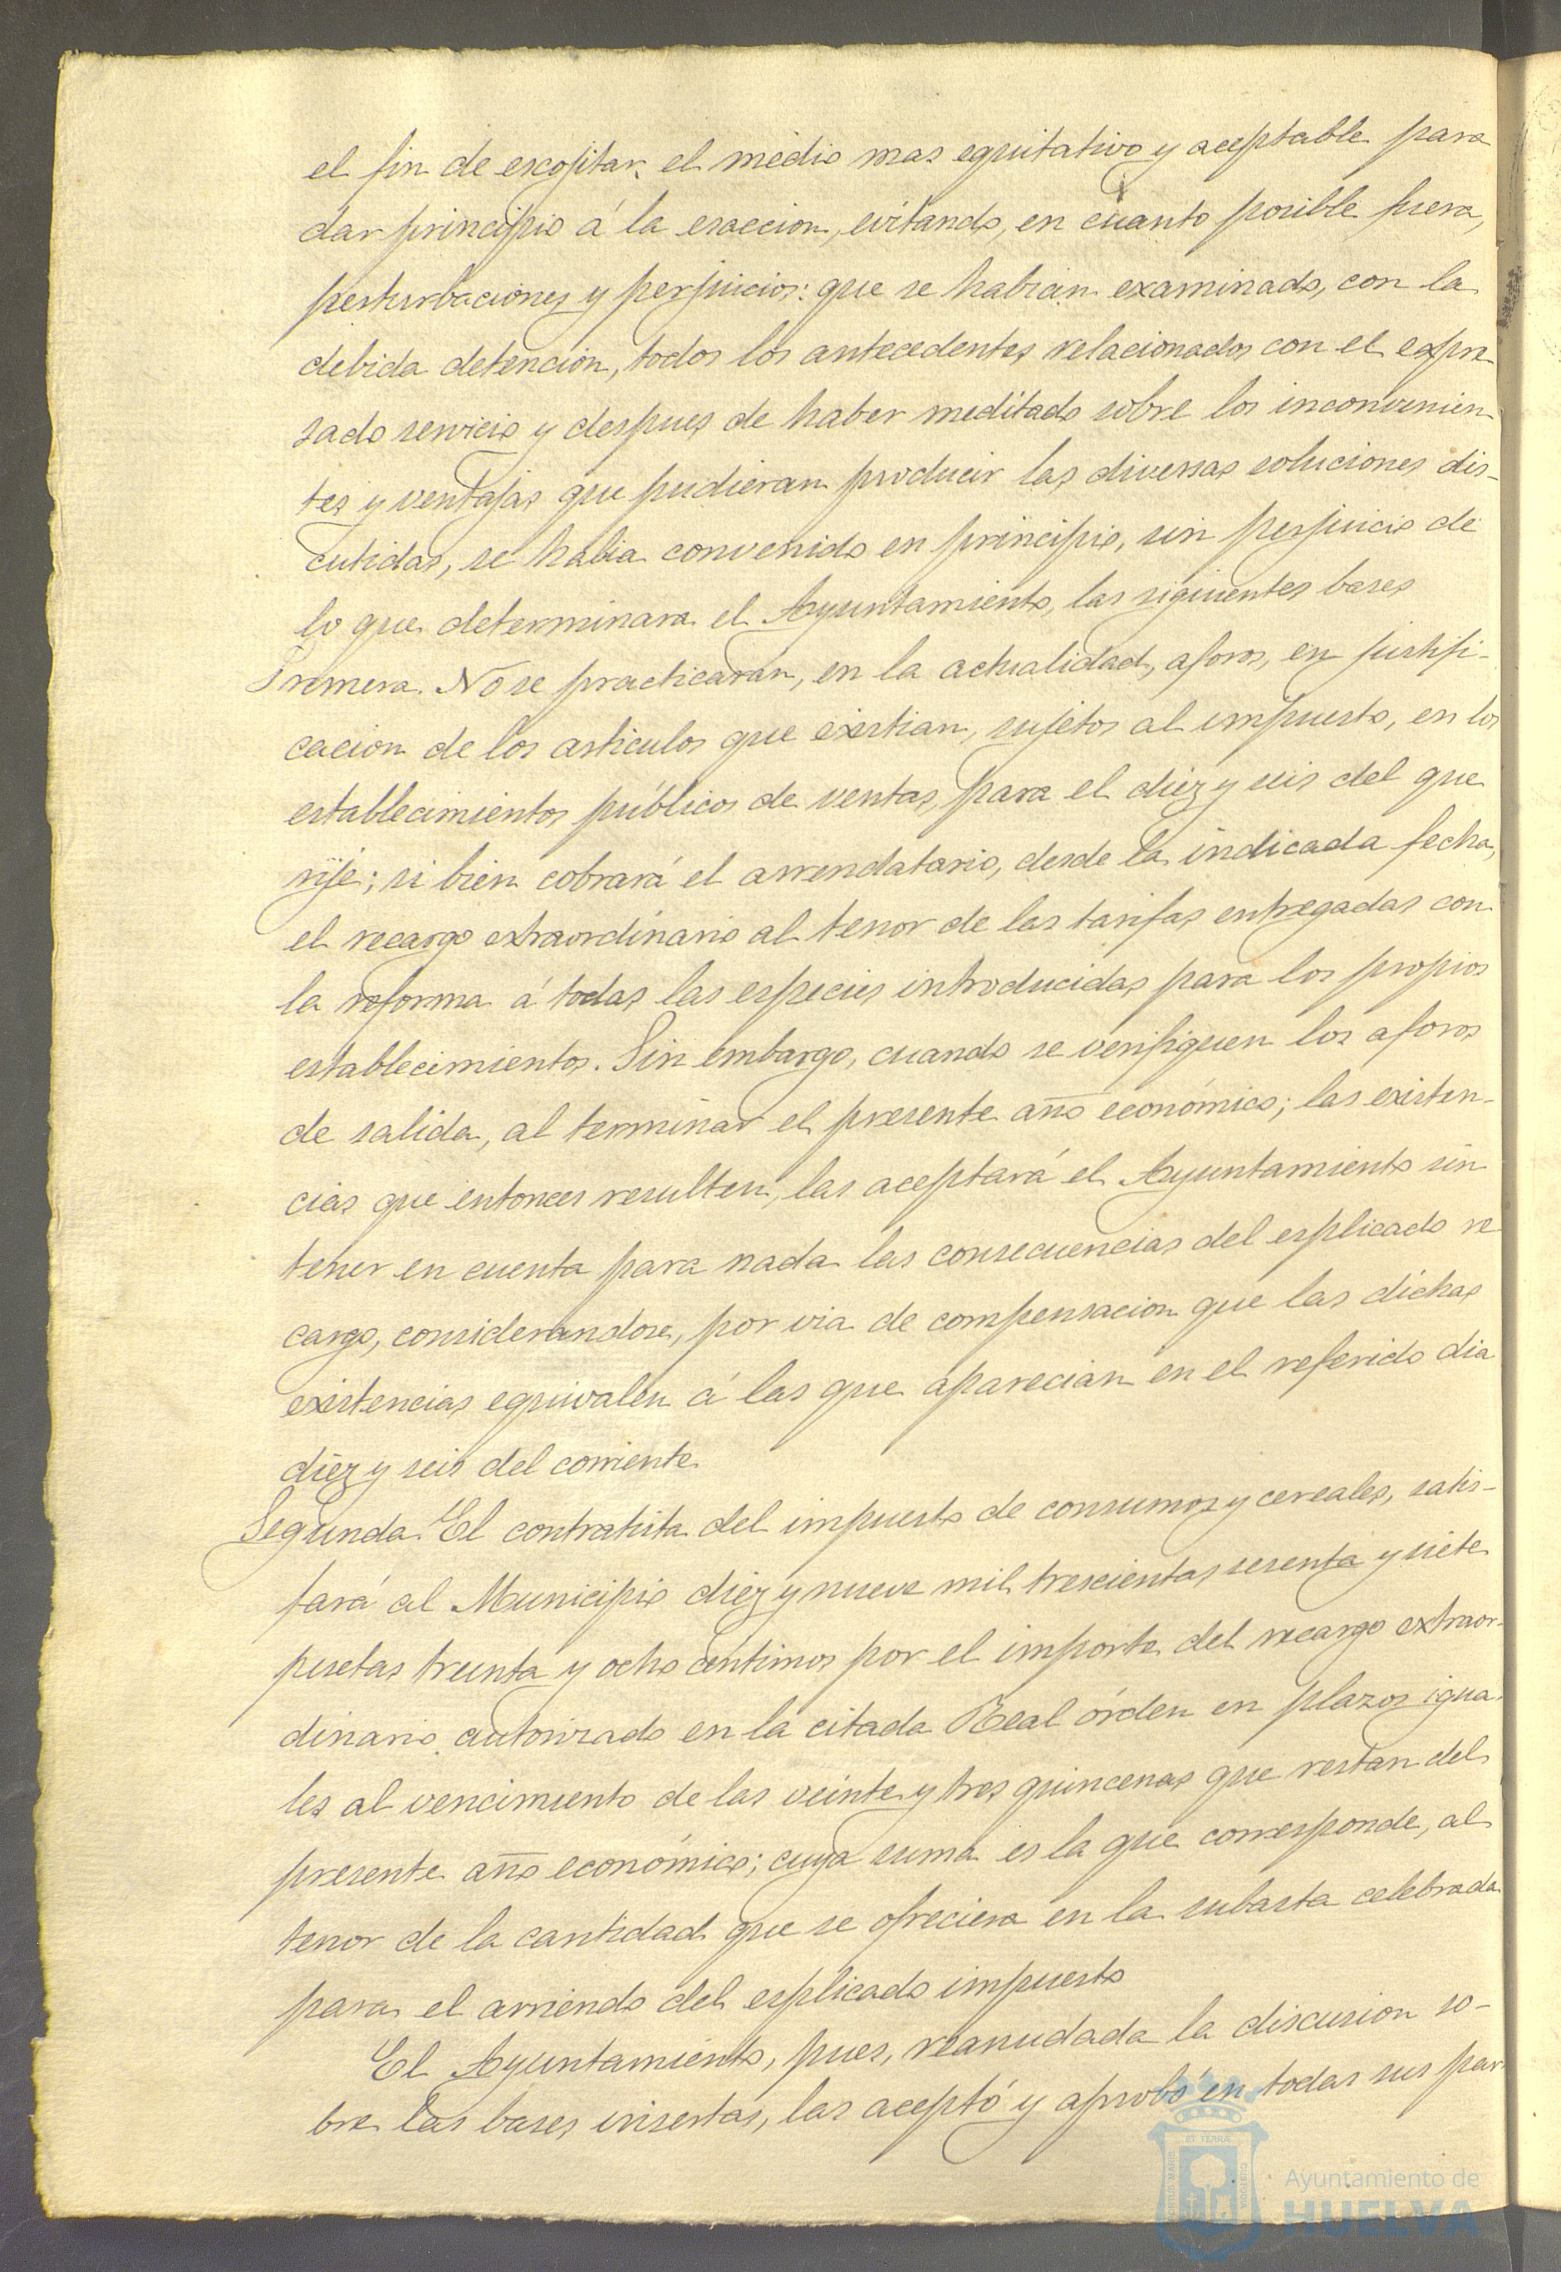 el fin de escojitar el medio mas equitativo y aceptable para
dar principio á la esaccion, evitando, en cuanto posible fuera,
perturbaciones y perjuicios: que se habian examinado, con la
debida detencion, todos los antecedentes relacionados con el espre
sado servicio y despues de haber meditado sobre los inconvenien
tes y ventajas que pudieran producir las diversas soluciones dis-
cutidas, se habia convenido en principio, sin perjuicio de
lo que determinara el Ayuntamiento, las siguientes bases
Primera. No se practicarán, en la actualidad, aforos, en justifi-
cacion de los articulos que existian, sujetos al impuesto, en los
establecimientos públicos de ventas, para el diez y seis del que
rije; si bien cobrará el arrendatario, desde la indicada fecha,
el recargo extraordinario al tenor de las tarifas entregadas con
la reforma á todas las especies introducidas para los propios
establecimientos. Sin embargo, cuando se verifiquen los aforos
de salida, al terminar el presente año económico; las existen-
cias que entonces resulten, las aceptará el Ayuntamiento sin
tener en cuenta para nada las consecuencias del esplicado re
cargo, considerandose, por via de compensacion que las dichas
existencias equivalen á las que aparecian en el referido dia
diez y seis del corriente
Segunda. El contratista del impuesto de consumos y cereales, satis-
fará al Municipio diez y nueve mil trescientas sesenta y siete
pesetas treinta y ocho centimos por el importe del recargo extraor-
dinario autorizado en la citada Real órden en plazos igua-
les al vencimiento de las veinte y tres quincenas que restan del
presente año económico; cuya suma es la que corresponde, al
tenor de la cantidad que se ofreciera en la subasta celebrada
para el arriendo del esplicado impuesto
El Ayuntamiento, pues, reanudada la discusion so-
bre las bases insertas, las aceptó y aprobó en todas sus par-
Ayuntamiento de
HUELVA